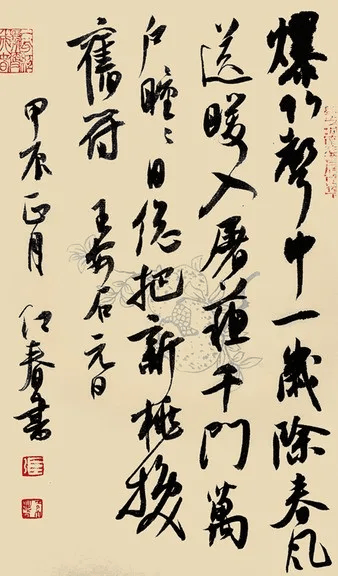 爆竹聲中一歲除春風
送暖入屠蘇千門萬
户曈〻日總把新桃換
舊符 王安石元日
甲辰正月 春書